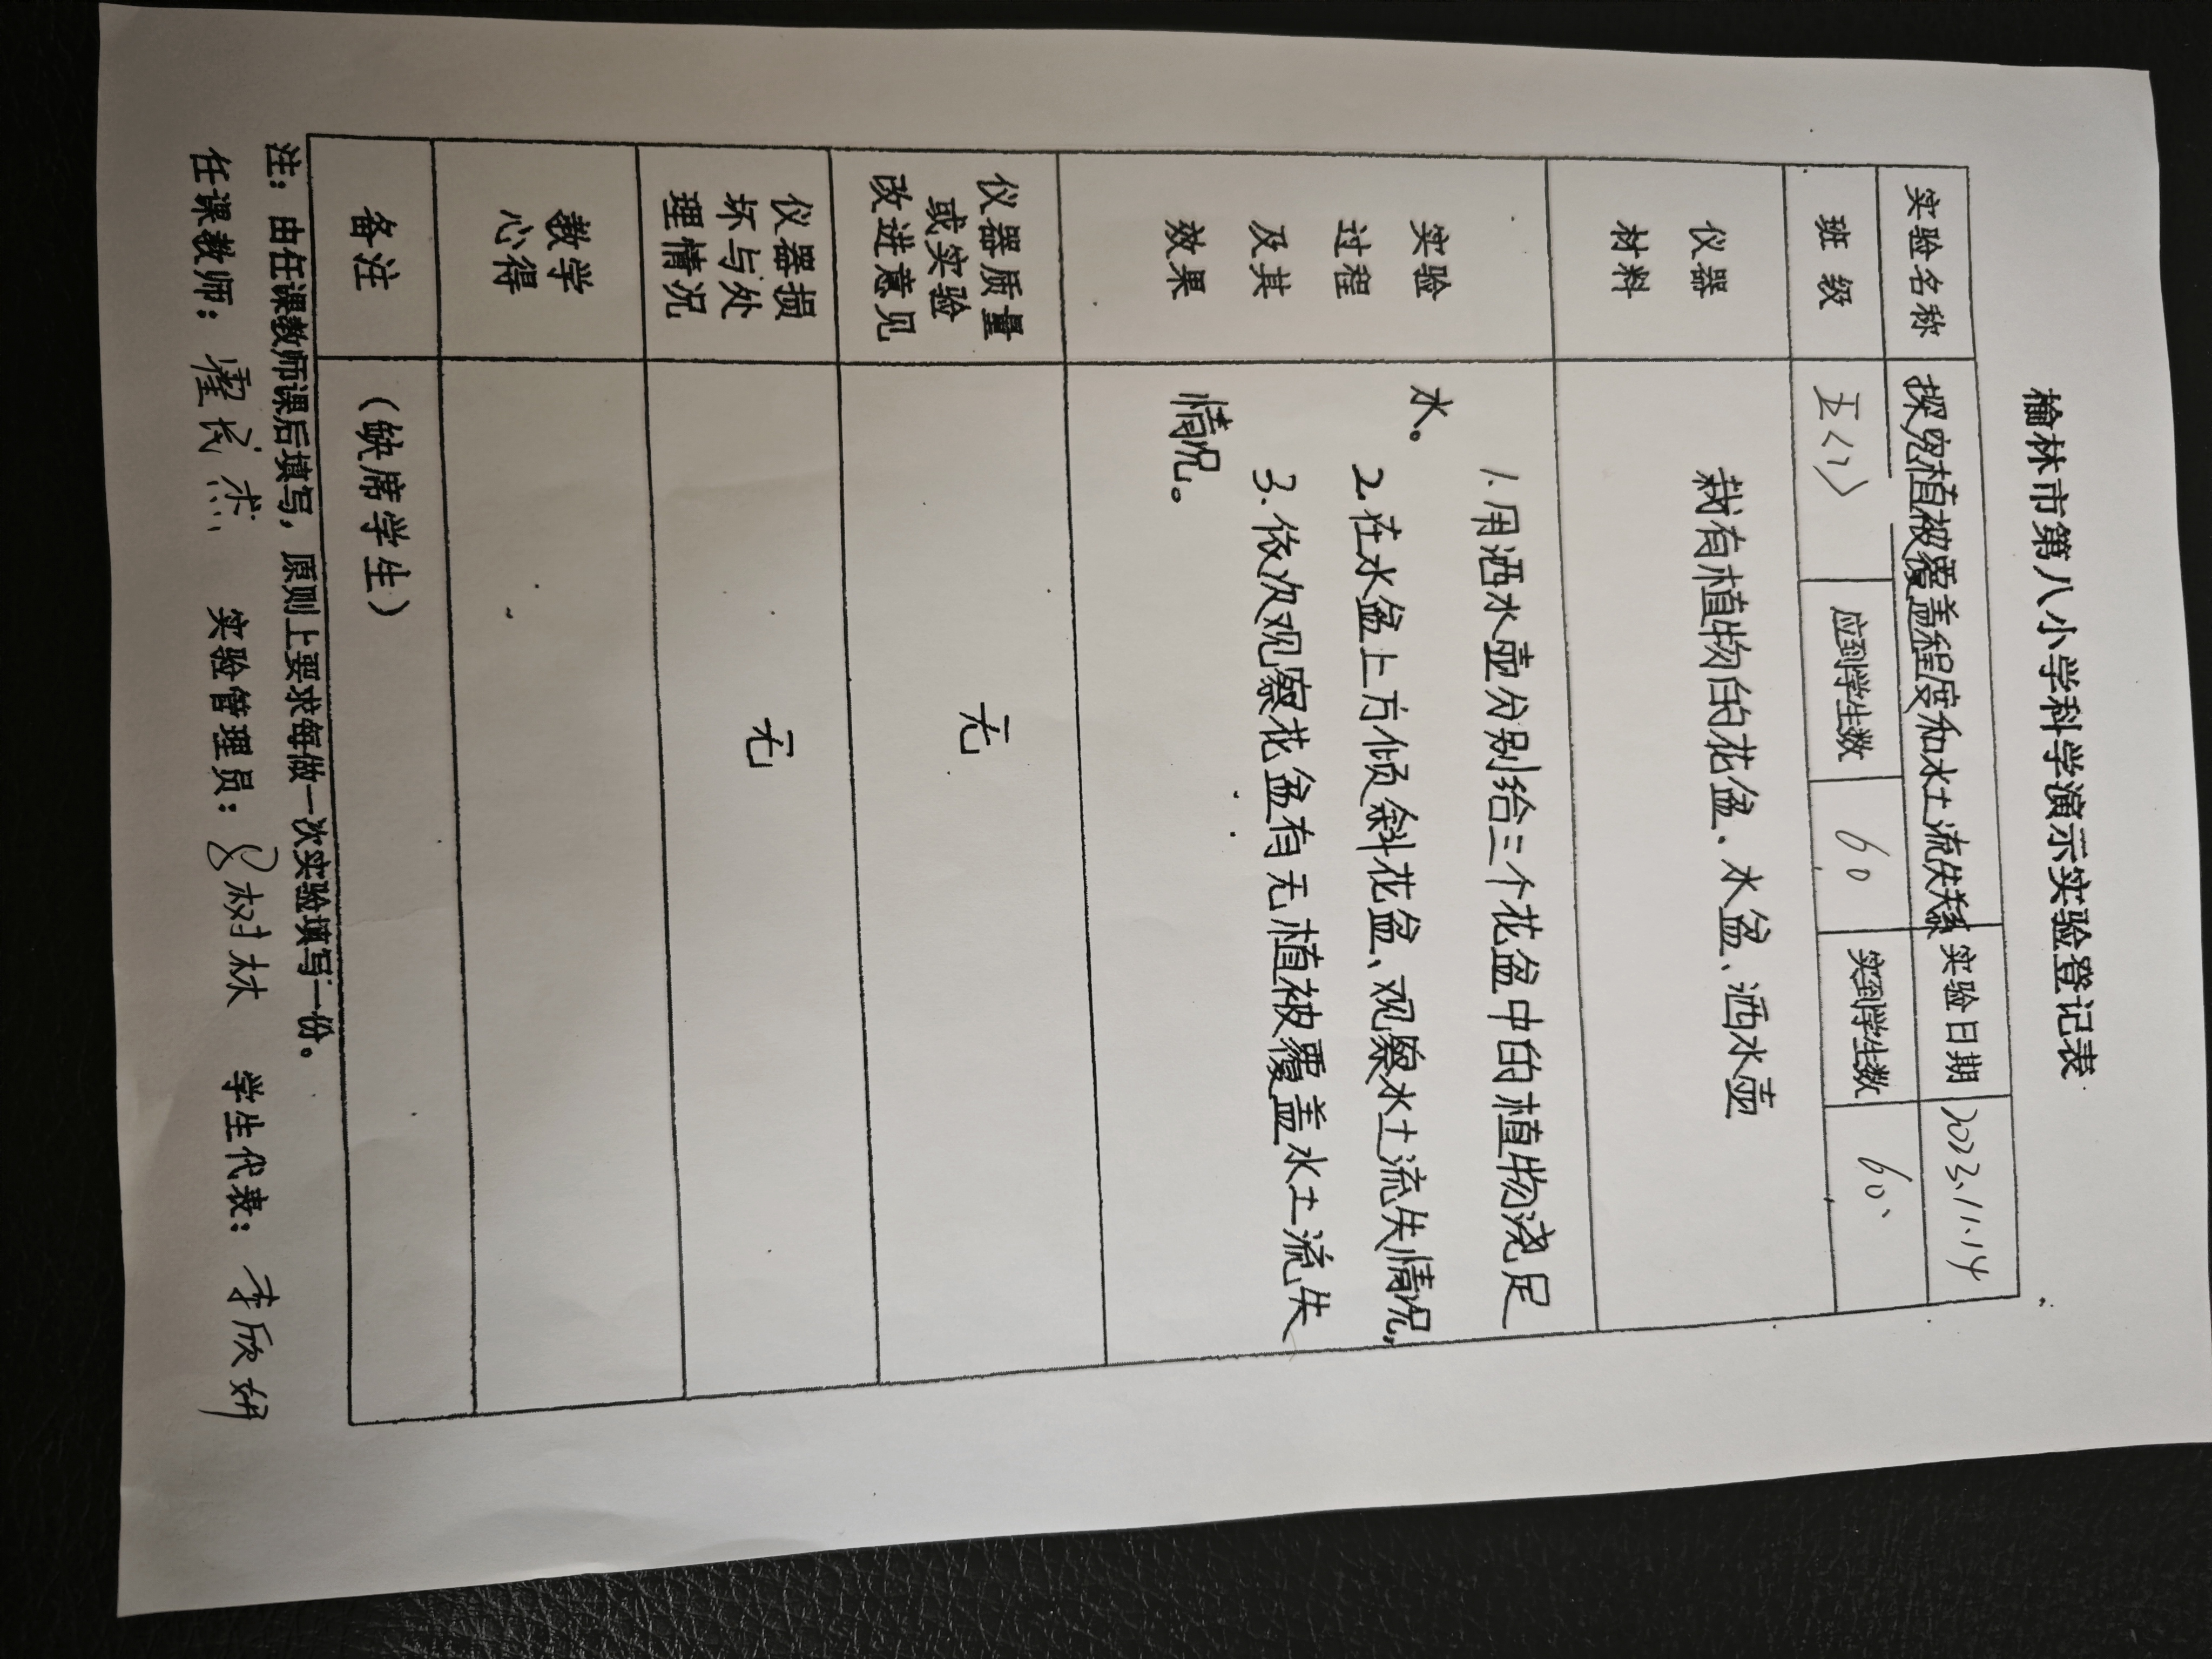 榆林市第八小学科学演示实验登记表
实验名称 探究植被覆盖程度和水土流失关系 实验日期 2023.11.14
班 级 五〈 〉 应到学生数 60 实到学生数 60、
仪器
材料
栽有植物的花盆、水盆、洒水壶
实验
过程
及其
效果
1.用洒水壶分别给三个花盆中的植物浇足
水。
2.在水盆上方倾斜花盆、观察水土流失情况,
3.依次观察花盆有无植被覆盖水土流失
情况。
仪器质量
或实验
改进意见
无
仪器损
坏与处
理情况
无
教学
心得
备注 (缺席学生)
注：由任课教师课后填写，原则上要求每做一次实验填写一份。
任课教师： 实验管理员： 树林 学生代表： 李欣妍